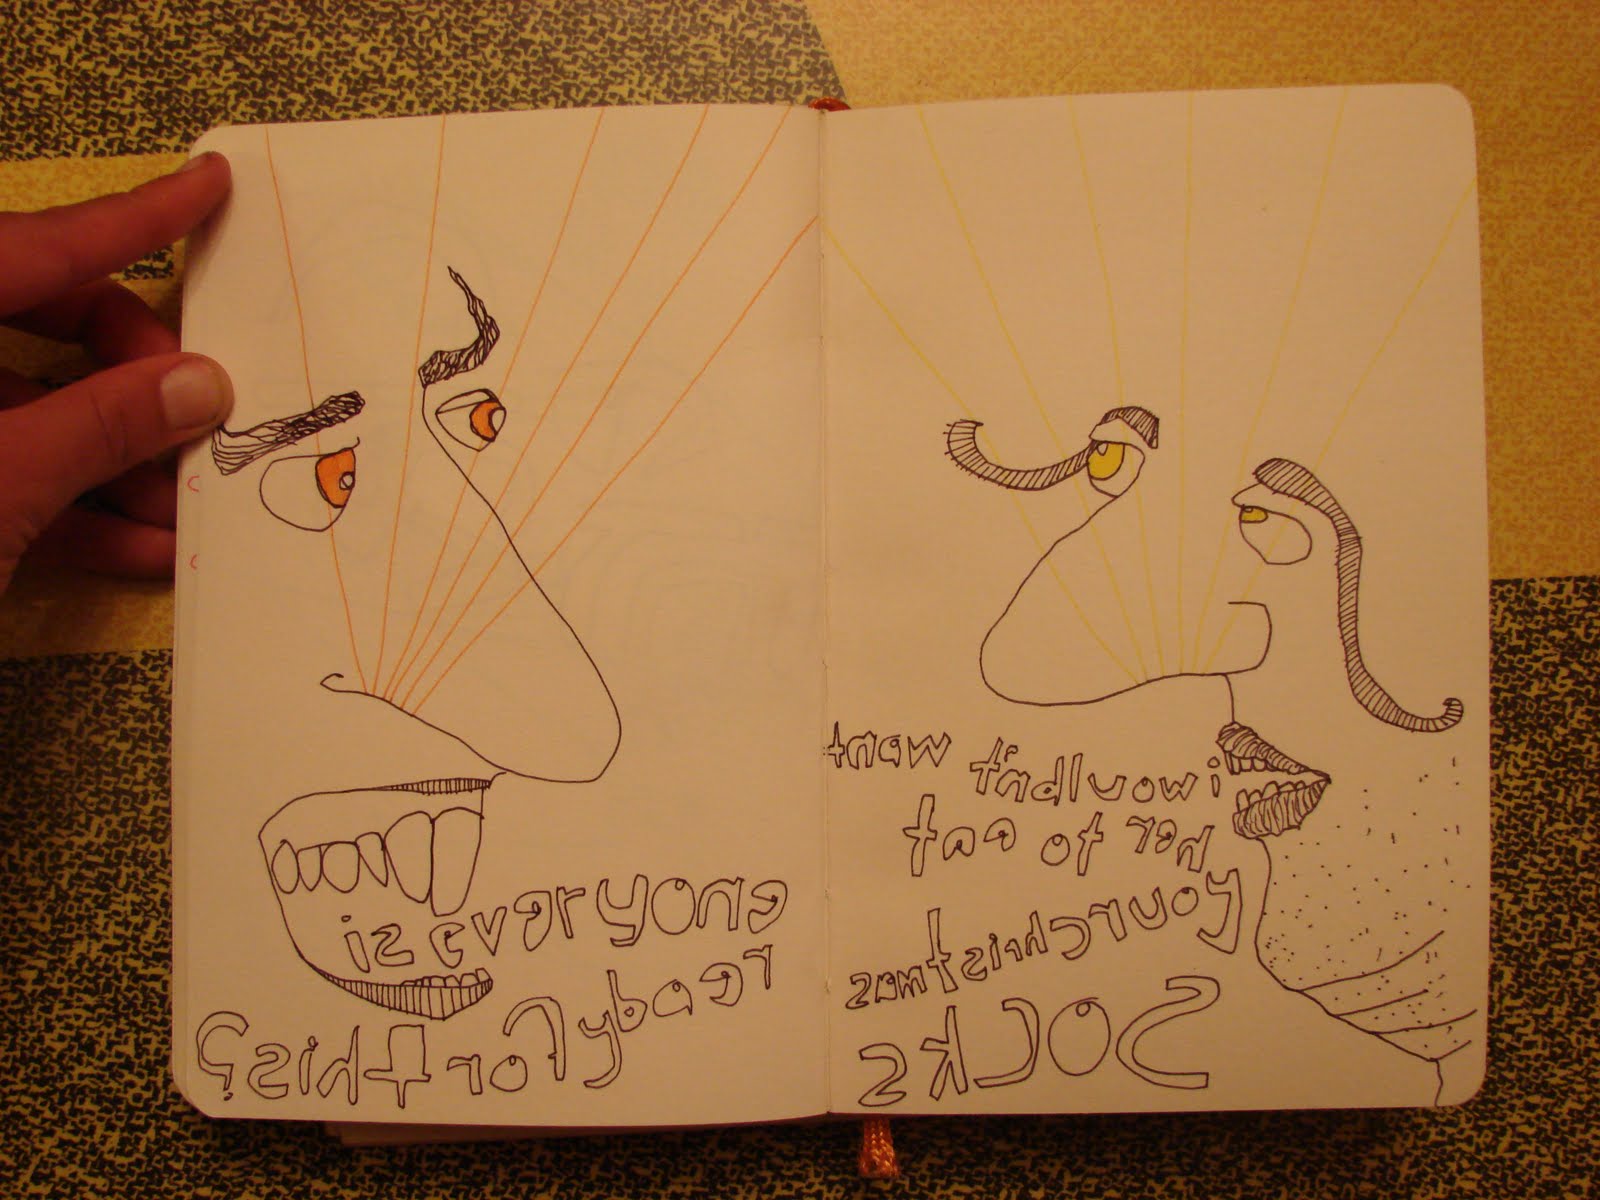 is everyone
ready for this?
i wouldn't want
her to eat
your christmas
socks